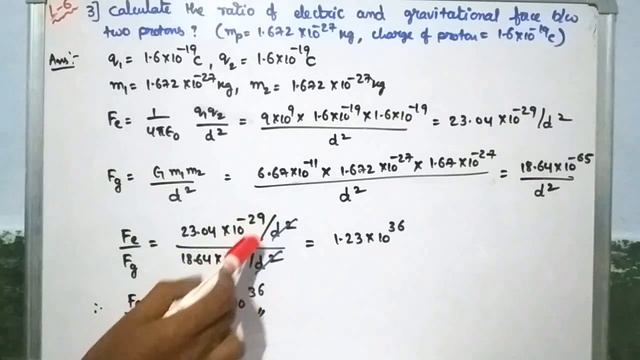 L-6 3] Calculate the ratio of electric and gravitational force b/w
two protons? (mp = 1.672 × 10^-27 kg, charge of proton = 1.6×10^-19 C)
Ans:- q₁ = 1.6×10^-19 C, q₂ = 1.6×10^-19 C
m₁ = 1.672×10^-27 kg, m₂ = 1.672×10^-27 kg
Fe = 1/4πε₀ q₁q₂/d² = 9×10^9 × 1.6×10^-19 × 1.6×10^-19 / d² = 23.04×10^-29/d²
Fg = G m₁m₂/d² = 6.67×10^-11 × 1.672×10^-27 × 1.67×10^-27 / d² = 18.64×10^-65/d²
Fe/Fg = 23.04×10^-29/d² / 18.64× /d² = 1.23×10^36
∴ 36 „